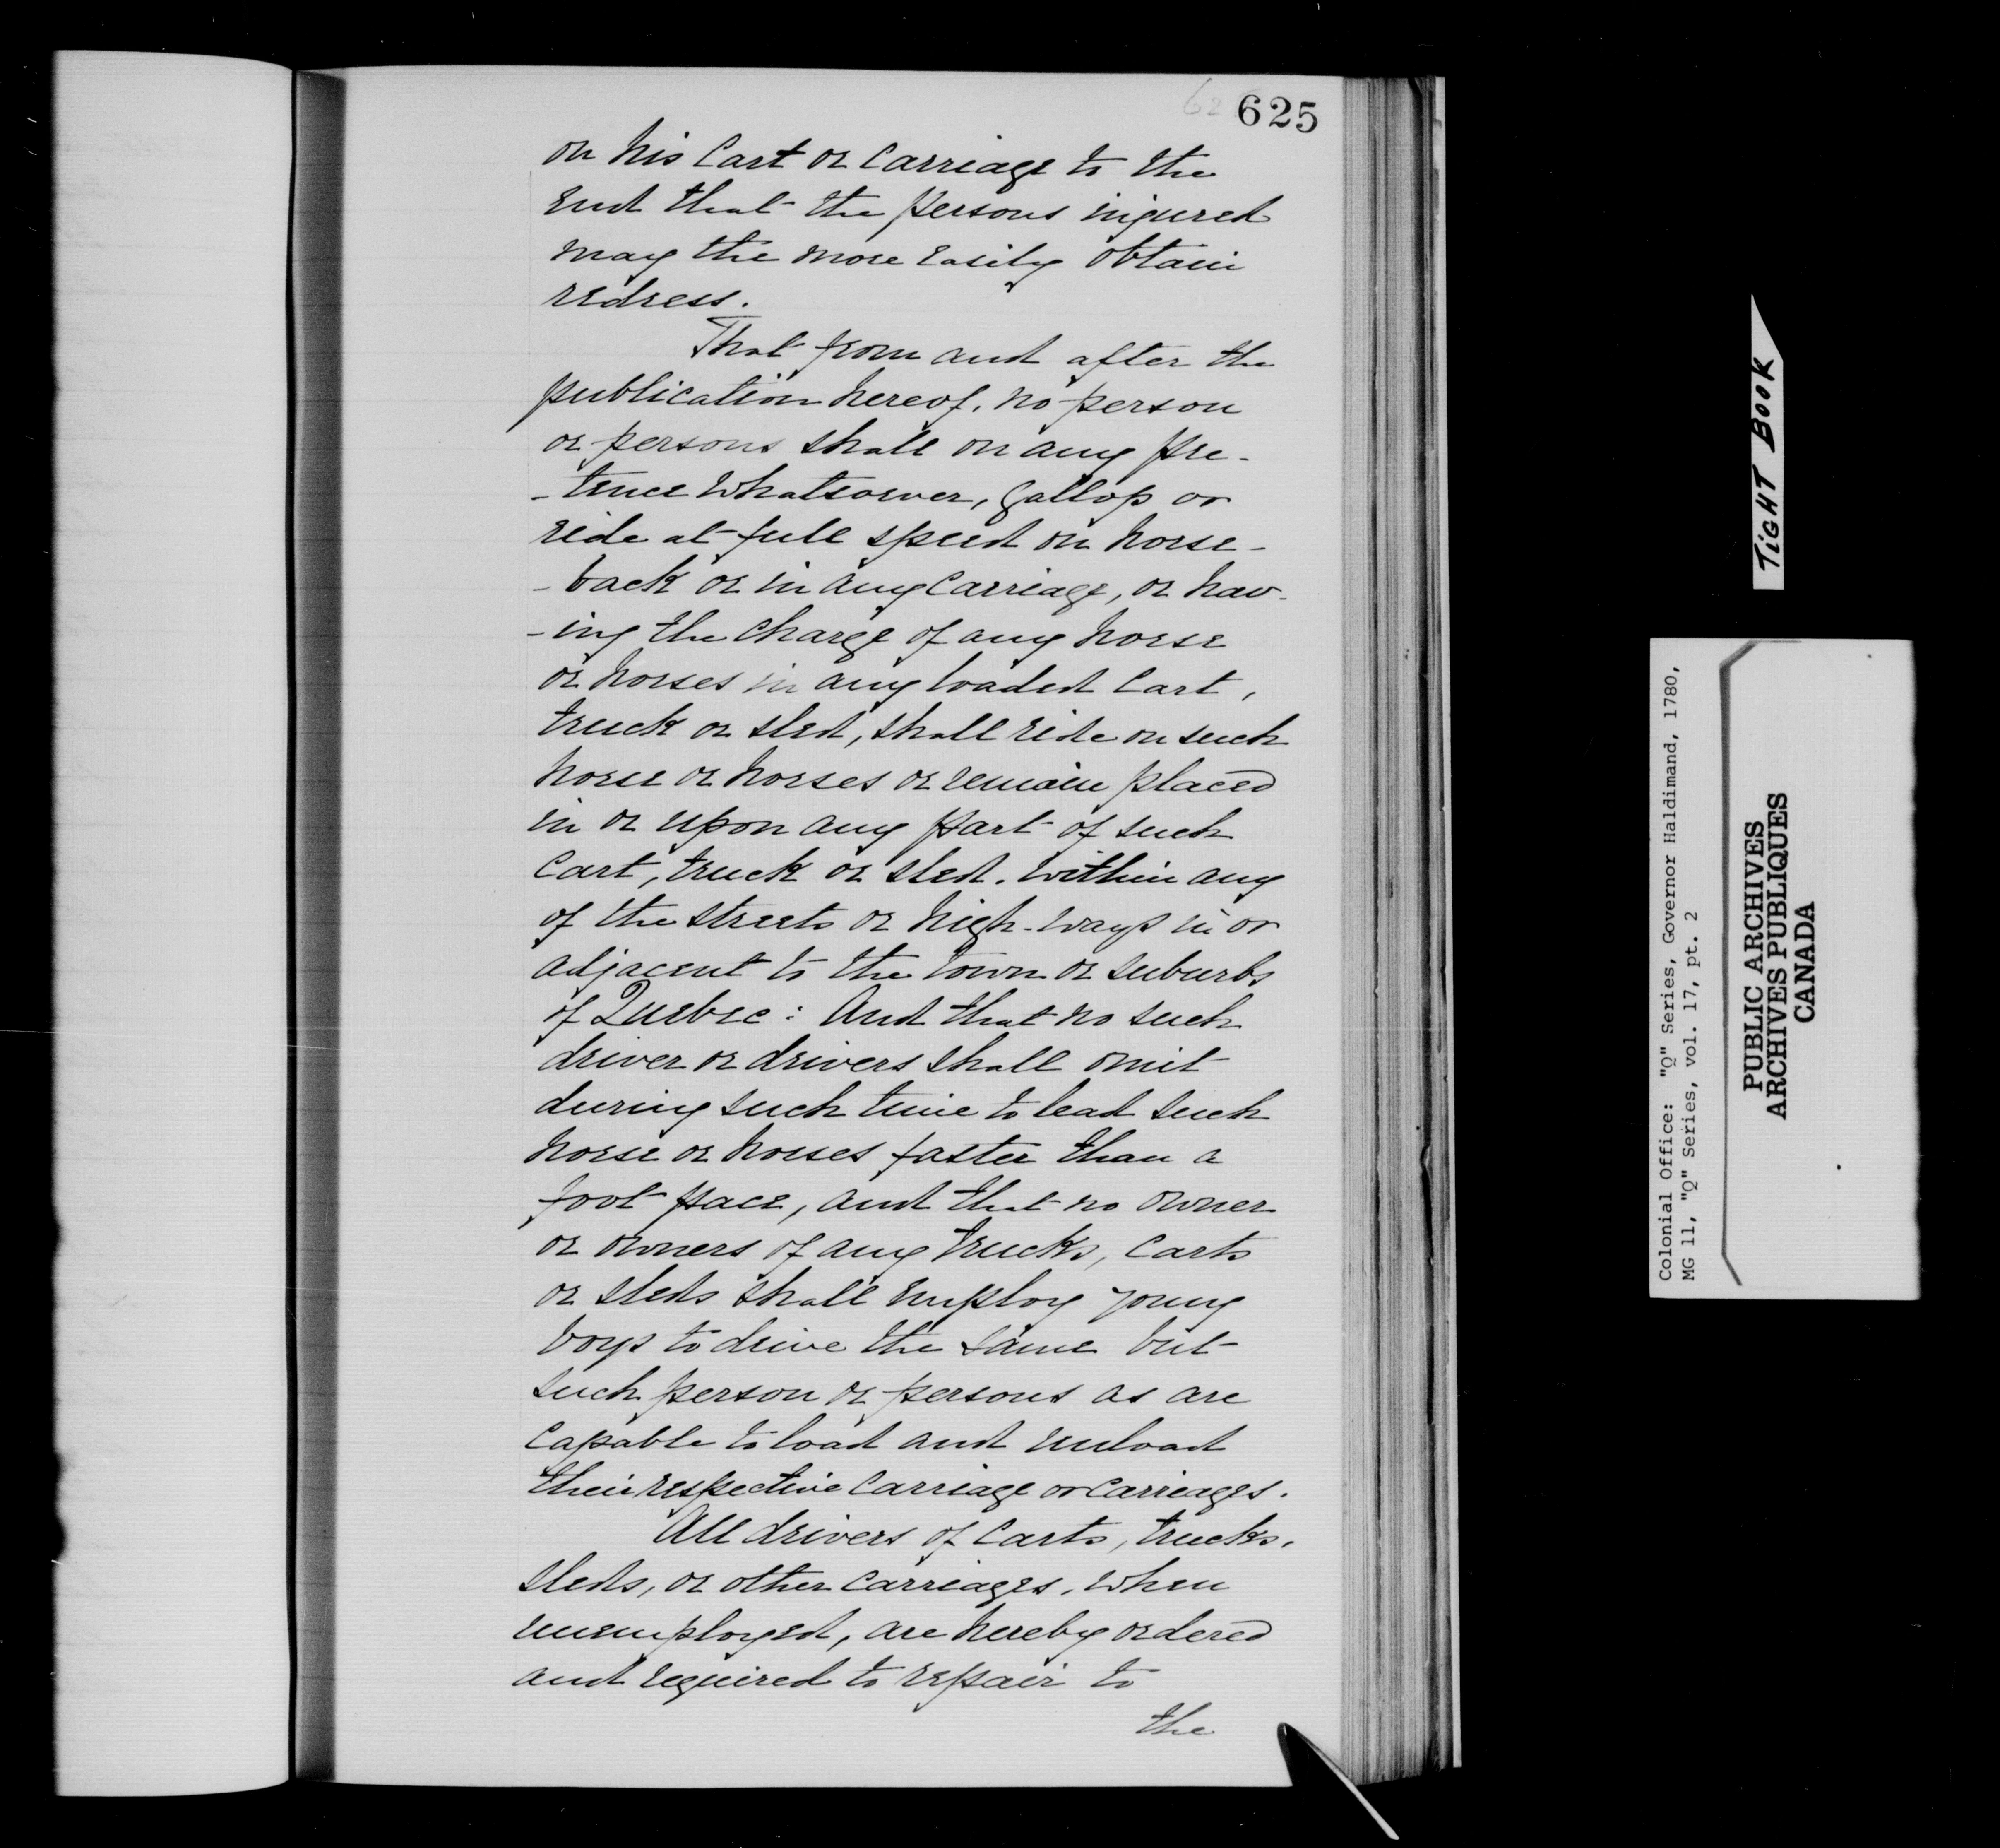 625
on his Cart or Carriage to the
End that the persons injured
may the more easily obtain
redress.
That from and after the
publication hereof, no person
or persons shall on any pre-
-tence whatsoever, gallop or
ride at full speed on horse-
-back or in any Carriage, or hav-
-ing the charge of any horse
or horses in any loaded Cart,
truck or sled, shall ride on such
horse or horses or remain placed
in or upon any part of such
Cart, truck or sled. within any
of the streets or high-ways in or
adjacent to the town or suburbs
of Quebec: And that no such
driver or drivers shall omit
during such time to lead such
horse or horses faster than a
foot pace, and that no owner
or owners of any trucks, Carts
or sleds shall employ young
boys to drive the same but
such person or persons as are
Capable to load and unload
their respective Carriage or Carriages.
All drivers of Carts, trucks,
sleds, or other Carriages, when
unemployed, are hereby ordered
and required to repair to
the
TIGHT BOOK
Colonial Office: "Q" Series, Governor Haldimand, 1780,
MG 11, "Q" Series, vol. 17, pt. 2
PUBLIC ARCHIVES
ARCHIVES PUBLIQUES
CANADA